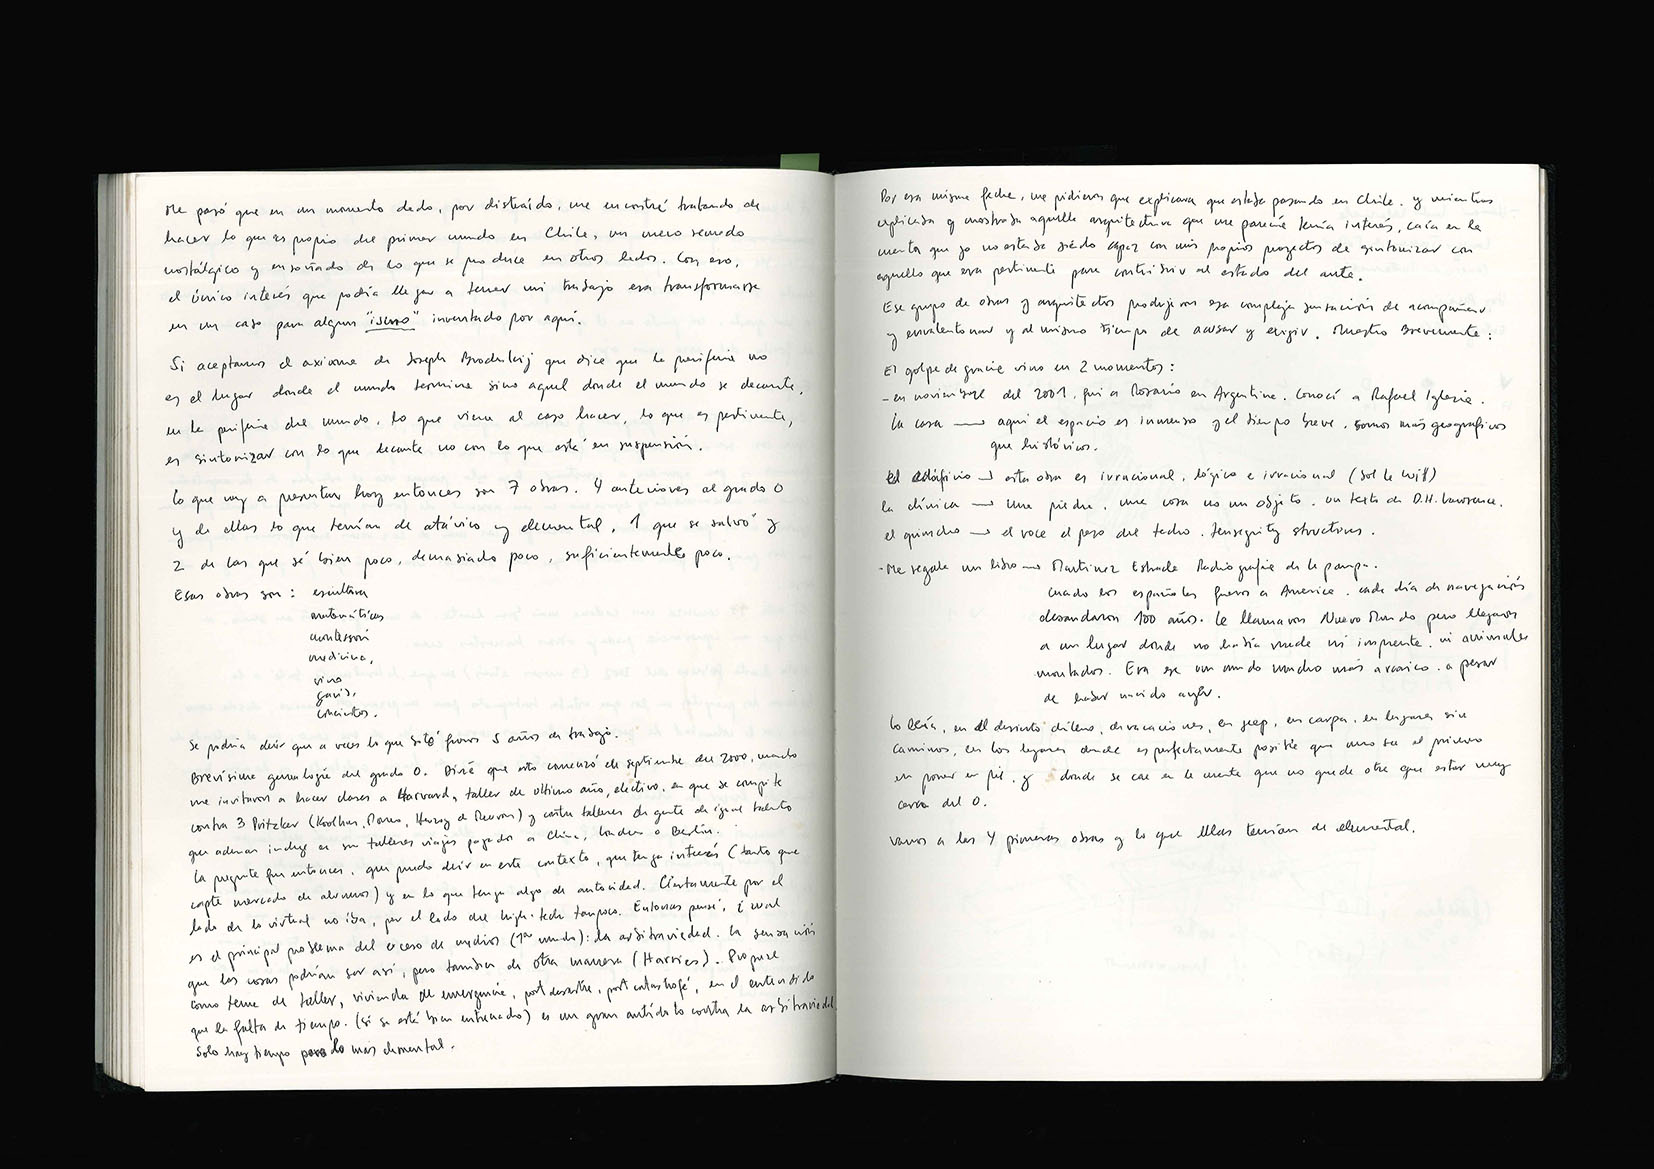 Me pasó que en un momento dado, por distraído, me encontré tratando de
hacer lo que es propio del primer mundo en Chile, un mero remedo
nostálgico y ensoñado de lo que se produce en otros lados. Con eso,
el único interés que podía llegar a tener mi trabajo era transformarse
en un caso para algun "ismo" inventado por aquí.
Si aceptamos el axioma de Joseph Brodsky que dice que la periferia no
es el lugar donde el mundo termina sino aquel donde el mundo se decanta,
en la periferia del mundo, lo que viene al caso hacer, lo que es pertinente,
es sintonizar con lo que decanta no con lo que esté en suspensión.
lo que voy a presentar hoy entonces son 7 obras. 4 anteriores al grado 0
y de ellas lo que tenían de atávico y elemental, 1 que se salvó y
2 de las que sé bien poco, demasiado poco, suficientemente poco.
Esas obras son: escultura
matemáticas
montessori
medicina,
vino
gavis,
concientos.
Se podría decir que a veces lo que sobró fueron 5 años de trabajo.
Brevísima genealogía del grado 0. Diré que esto comenzó en septiembre del 2000, cuando
me invitaron a hacer clases a Harvard, taller de último año, electivo, en que se compite
contra 3 Pritzker (Koolhas, Moneo, Herzog & de Meuron) y contra talleres de gente de igual talento
que ademas incluye en sus talleres viajes pagados a China, Londres o Berlin.
la pregunta fue entonces, que puedo decir en este contexto, que tenga interés (tanto que
capte mercado de alumnos) y en lo que tenga algo de autoridad. Ciertamente por el
lado de lo virtual no iba, por el lado del high-tech tampoco. Entonces pensé, ¿cual
es el principal problema del exceso de medios (1er mundo): la arbitrariedad. la sensación
que las cosas podrían ser así, pero tambien de otra manera (Harries). Propuse
como tema de taller, vivienda de emergencia, post desastre, post catastrofe, en el entendido
que la falta de tiempo. (si se está bien entrenado) es un gran antídoto contra la arbitrariedad.
Solo hay tiempo para lo más elemental.
Por esa misma fecha, me pidieron que explicara que estaba pasando en Chile. y mientras
explicaba y mostraba aquella arquitectura que me parecía tenía interés, caía en la
cuenta que yo no estaba siendo capaz con mis propios proyectos de sintonizar con
aquello que era pertinente para contribuir al estado del arte.
Ese grupo de obras y arquitectos produjeron esa compleja sensación de acompañar
y envalentonar y al mismo tiempo de acusar y exigir. Muestro brevemente:
El golpe de gracia vino en 2 momentos:
- en noviembre del 2001, fui a Rosario en Argentina. Conocí a Rafael Iglesia.
la casa → aquí el espacio es inmenso y el tiempo breve. somos más geográficos
que históricos.
el edificio → esta obra es irracional, lógica e irracional (Sol le Witt)
la clínica → una piedra, una cosa no un objeto. un texto de D.H. Lawrence.
el quincho → el voce el peso del techo. tensegrity structures.
- Me regala un libro → Martinez Estrada Radiografía de la pampa.
cuando los españoles fueron a America. cada día de navegación
desandaron 100 años. le llamaron Nuevo Mundo pero llegaron
a un lugar donde no había rueda ni imprenta, ni animales
montados. Era ese un mundo mucho más arcaico. a pesar
de haber nacido ayer.
lo leía, en el desierto chileno, de vacaciones, en jeep, en carpa, en lugares sin
caminos, en los lugares donde es perfectamente posible que uno sea el primero
en poner un pie, y donde se cae en la cuenta que no queda otra que estar muy
cerca del 0.
vamos a las 4 primeras obras y lo que ellas tenían de elemental.